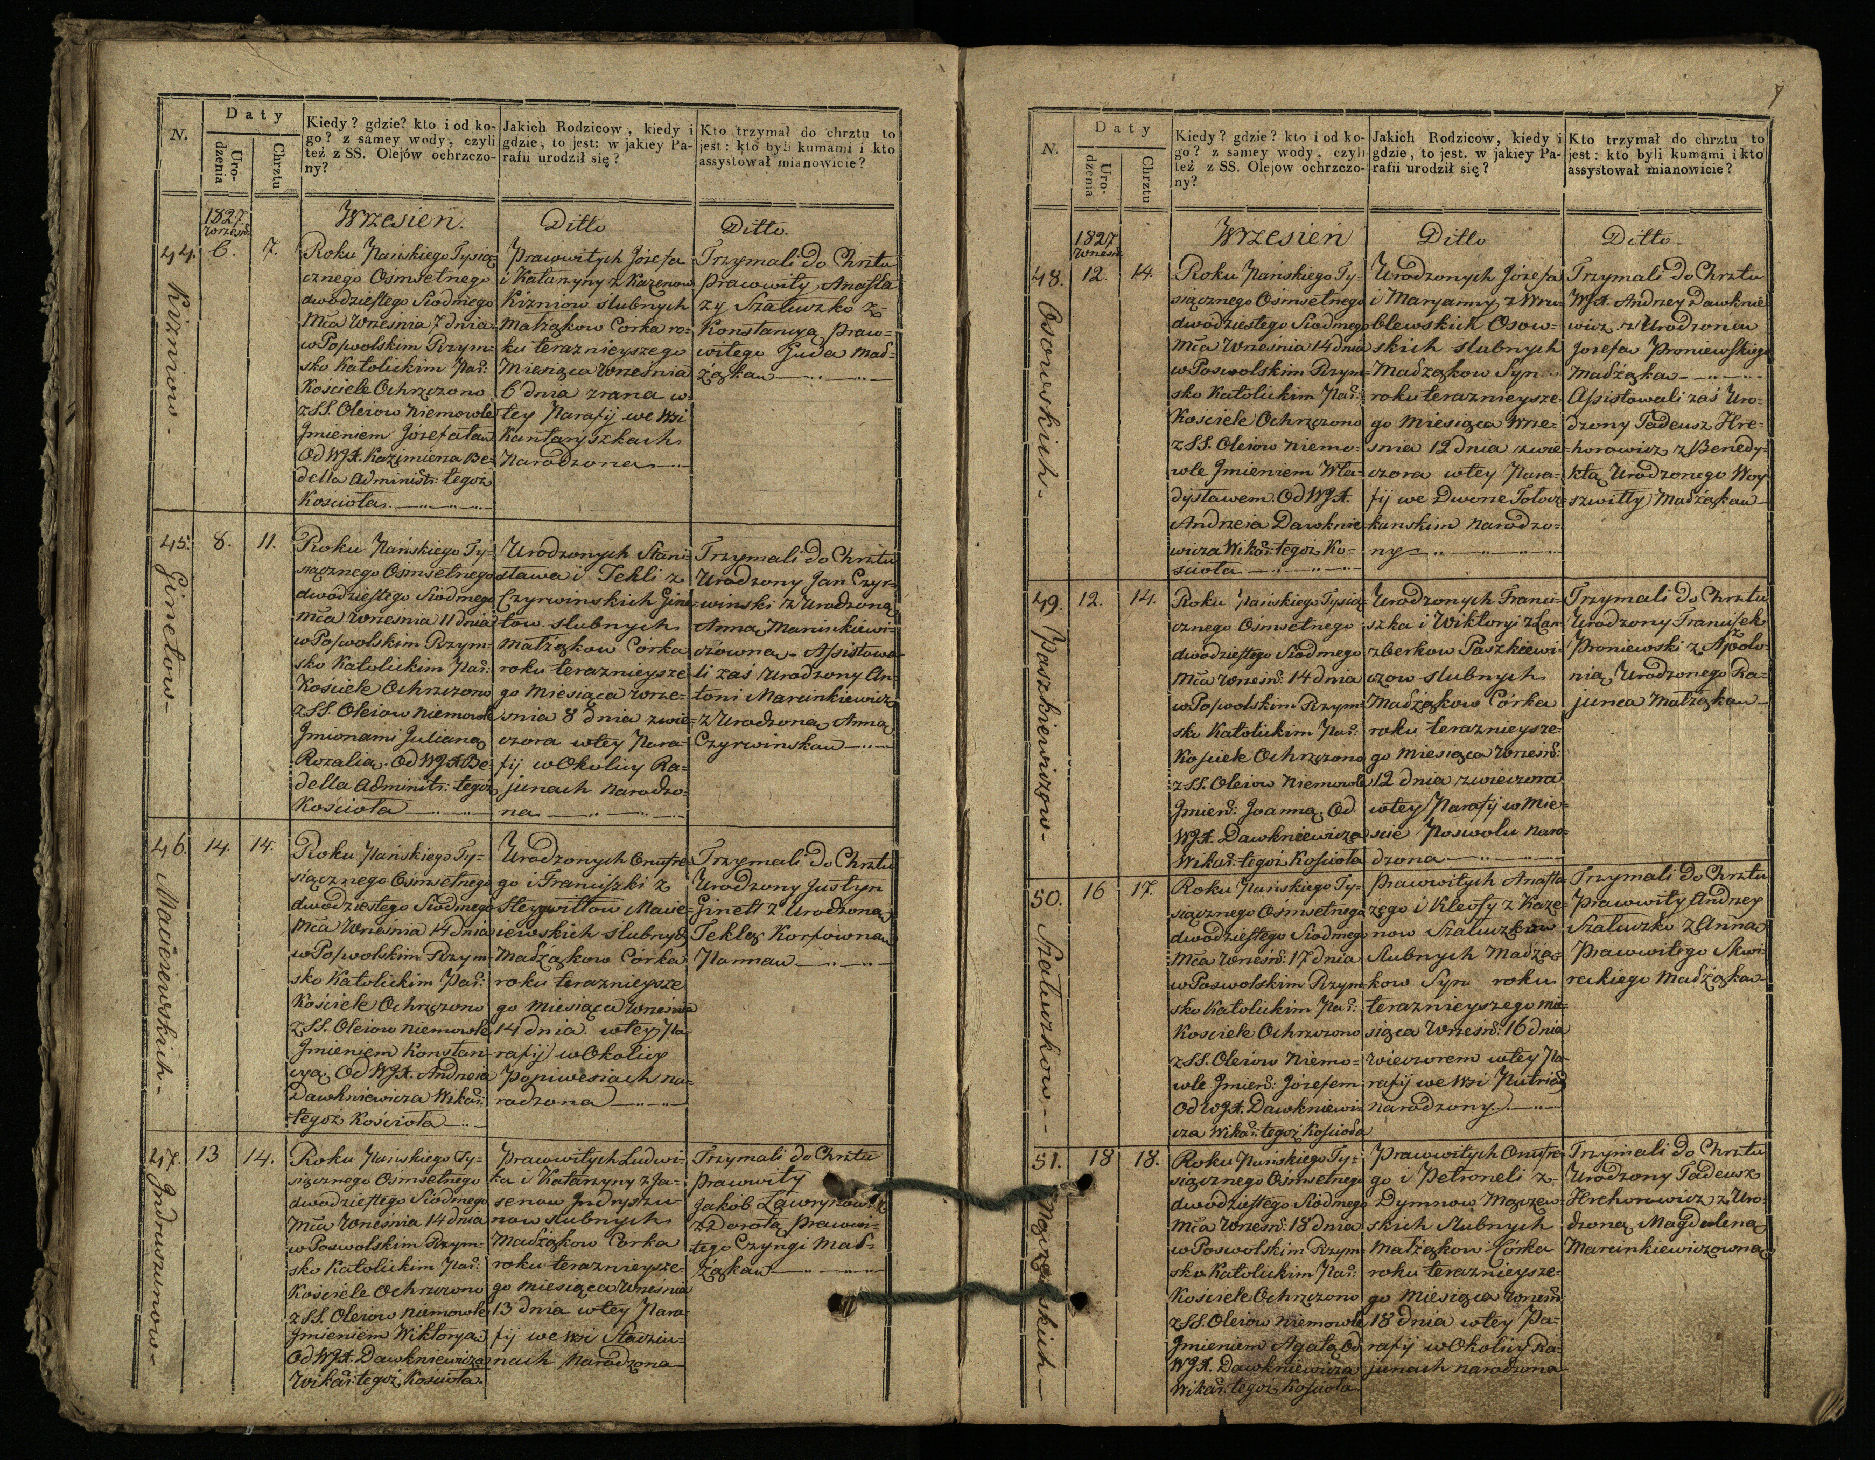 N.
Daty
Uro-
dzenia
Chrztu
Kiedy? gdzie? kto i od ko-
go? z samey wody, czyli
też z SS. Olejów ochrzczo-
ny?
Jakich Rodzicow, kiedy i
gdzie, to jest: w jakiey Pa-
rafii urodził się?
Kto trzymał do chrztu to
jest: kto byli kumami i kto
assystował mianowicie?
1827
Wrześń
Wrzesień.
Ditto
Ditto.
44.
Kiżniow-
6.
7.
Roku Pańskiego Tysią-
cznego Osmsetnego
dwodziestego Siodmego
Mca Września 7 dnia
w Poswolskim Rzym-
sko Katolickim Par:
Kosciele Ochrzczono
z SS. Oleiow Niemowle
Jmieniem Jozefata
Od WJX. Kazimierza Be-
della Administr: tegoż
Koscioła
Prawowitych Józefa
i Katarzyny z Kazenow
Kiżniow slubnych
Małżąkow Corka ro-
ku teraznieyszego
Miesiąca Września
6 dnia zrana w
tey Parafij we Wsi
Kantaryszkach
Narodzona
Trzymali do Chrztu
Prawowity Anasta
zy Szatuszko z
Konstancyą Praw-
witego Guda Mał-
żąkaw
45.
Ginetow-
8.
11.
Roku Pańskiego Ty-
siącznego Osmsetnego
dwodziestego Siodmego
Mca Września 11 dnia
w Poswolskim Rzym-
sko Katolickim Par:
Kosciele Ochrzczono
z SS. Oleiow Niemowle
Jmionami Julianą
Rozalią. Od WJX Be-
della Administr: tegoż
Kosciola
Urodzonych Stani-
sława i Tekli z
Czyrwinskich Gine
tow slubnych
Małżąkow Corka
roku teraznieysze-
go Miesiąca Wrze-
śnia 8 dnia zwie-
czora wtey Para-
fij w Okolicy Ra-
junach Narodzo-
na
Trzymali do Chrztu
Urodzony Jan Czyr-
winski z Urodzoną
Anną Marcinkiewi-
czowna. Assistowa-
li zaś Urodzony An-
toni Marcinkiewicz
z Urodzoną Anną
Czyrwinskaw
46.
Macieiewskich-
14.
14.
Roku Pańskiego Ty-
siącznego Osmsetnego
dwodziestego Siodmego
Mca Września 14 dnia
w Poswolskim Rzym-
sko Katolickim Par:
Kościele Ochrzczono
z SS. Oleiow Niemowle
Jmieniem Konstan-
cya. Od WJX. Andrzeia
Dawkniewicza Wikar:
tegoż Kościoła
Urodzonych Onufre-
go i Franciszki z
Steygwiłłow Macie-
iewskich slubnych
Małżąkow Córka
roku teraznieysze
go miesiąca Września
14 dnia wtey Pa-
rafij w Okolicy
Popiwesiach na-
rodzona
Trzymali do Chrztu
Urodzony Justyn
Ginett z Urodzoną
Teklą Korfówna
Pannaw
47.
Jndruszunow-
13
14.
Roku Pańskiego Ty-
siącznego Osmsetnego
dwodziestego Siodmego
Mca Września 14 dnia
w Poswolskim Rzym-
sko Katolickim Par:
Kościele Ochrzczono
z SS. Oleiow Niemowle
Jmieniem Wiktorya
Od WJX. Dawkniewicza
Wikar: tegoż Kosciola.
Prawowitych Ludwi-
ka i Katarzyny z Ja-
senow Jndryszu-
now slubnych
Małżąkow Corka
roku teraznieysze-
go miesiąca Września
13 dnia wtey Para-
fij we wsi Staciu-
nach Narodzona
Trzymali do Chrztu
Prawowity
Jakób Ławrynow:
z Dorotą Prawowi-
tego Czyngi Mał-
żąkaw
N.
Daty
Uro-
dzenia
Chrztu
Kiedy? gdzie? kto i od ko-
go? z samey wody, czyli
też z SS. Olejow ochrzczo-
ny?
Jakich Rodzicow, kiedy i
gdzie, to jest. w jakiey Pa-
rafii urodził się?
Kto trzymał do chrztu to
jest: kto byli kumami i kto
assystował mianowicie?
1827
Wrześń
Wrzesień
Ditto
Ditto
48.
Osowskich-
12.
14.
Roku Pańskiego Ty-
siącznego Ośmsetnego
dwodziestego Siodmego
Mca Września 14 dnia
w Poswolskim Rzym-
sko Katolickim Par:
Kościele Ochrzczono
z SS. Oleiow Niemo-
wle Jmieniem Wła-
dysławem. Od WJX.
Andrzeia Dawknie-
wicza Wikar: tegoż Ko-
scioła
Urodzonych Józefa
i Maryanny z Wru-
blewskich Osow-
skich slubnych
Małżąkow Syn
roku teraznieysze-
go miesiąca Wrze-
śnia 12 dnia zwie-
czora wtey Para-
fij we Dworze Tolocz-
kanskim narodzo-
ny
Trzymali do Chrztu
WJX. Andrzey Dawknie
wicz z Urodzoną
Jozefa Proniewskiego
Małżąka
Assistowali zaś Uro-
dzony Tadeusz Hre-
horowicz z Benedy-
ktą Urodzonego Woy
szwiłły Małżąkaw
49.
Paszkiewiczow-
12.
14.
Roku Pańskiego Tysią-
cznego Ośmsetnego
dwodziestego Siodmego
Mca Wrześn: 14 dnia
w Poswolskim Rzym-
sko Katolickim Par:
Kosciele Ochrzczono
z SS. Oleiow Niemowle
Jmien: Joanna, Od
WJX. Dawkniewicza
Wikar: tegoż Kościoła
Urodzonych Franci-
szka i Wiktoryi z Lan-
zberkow Paszkiewi-
czow slubnych
Małżąkow Córka
roku teraznieysze-
go Miesiąca Wrześń:
12 dnia zwieczora
wtey Parafij w Mie-
scie Poswolu Naro-
dzona
Trzymali do Chrztu
Urodzony Franciszek
Proniewski z Apolo-
nią Urodzonego Ra-
junca Małżąkaw
50.
Szatuszkow-
16
17.
Roku Pańskiego Ty-
siącznego Ośmsetnego
dwodziestego Siodmego
Mca Wrześń: 17 dnia
w Poswolskim Rzym-
sko Katolickim Par:
Kosciele Ochrzczono
z SS. Oleiow Niemo-
wle Jmień: Józefem
Od WJX. Dawkniewi-
cza Wikar: tegoż Kościoła
Prawowitych Anasta
zego i Kleofy z Kaze-
now Szatuszkow
Slubnych Małżą-
kow Syn roku
teraznieyszego Mie-
siąca Wrześń: 16 dnia
Wieczorem wtey Pa-
rafij we Wsi Putrió
Narodzony
Trzymali do Chrztu
Prawowity Andrzey
Szatuszko z Anną
Prawowitego Skwi-
reckiego Małżąka
51.
18
18.
Roku Pańskiego Ty-
siącznego Osmsetnego
dwodziestego Siodmego
Mca Wrześń: 18 dnia
w Poswolskim Rzym-
sko Katolickim Par:
Kosciele Ochrzczono
z SS. Oleiow Niemowle
Jmieniem Agatą Od
WJX. Dawkniewicza
Wikar: tegoż Kościoła
Prawowitych Onufre-
go i Petroneli z
Dymnow Mączew-
skich slubnych
Małżąkow Córka
roku teraznieysze-
go Miesiąca Wrześń:
18 dnia wtey Pa-
rafij w Okolicy Ra-
junach narodzona
Trzymali do Chrztu
Urodzony Tadeusz
Hrehorowicz z Uro-
dzoną Magdaleną
Marcinkiewiczowną